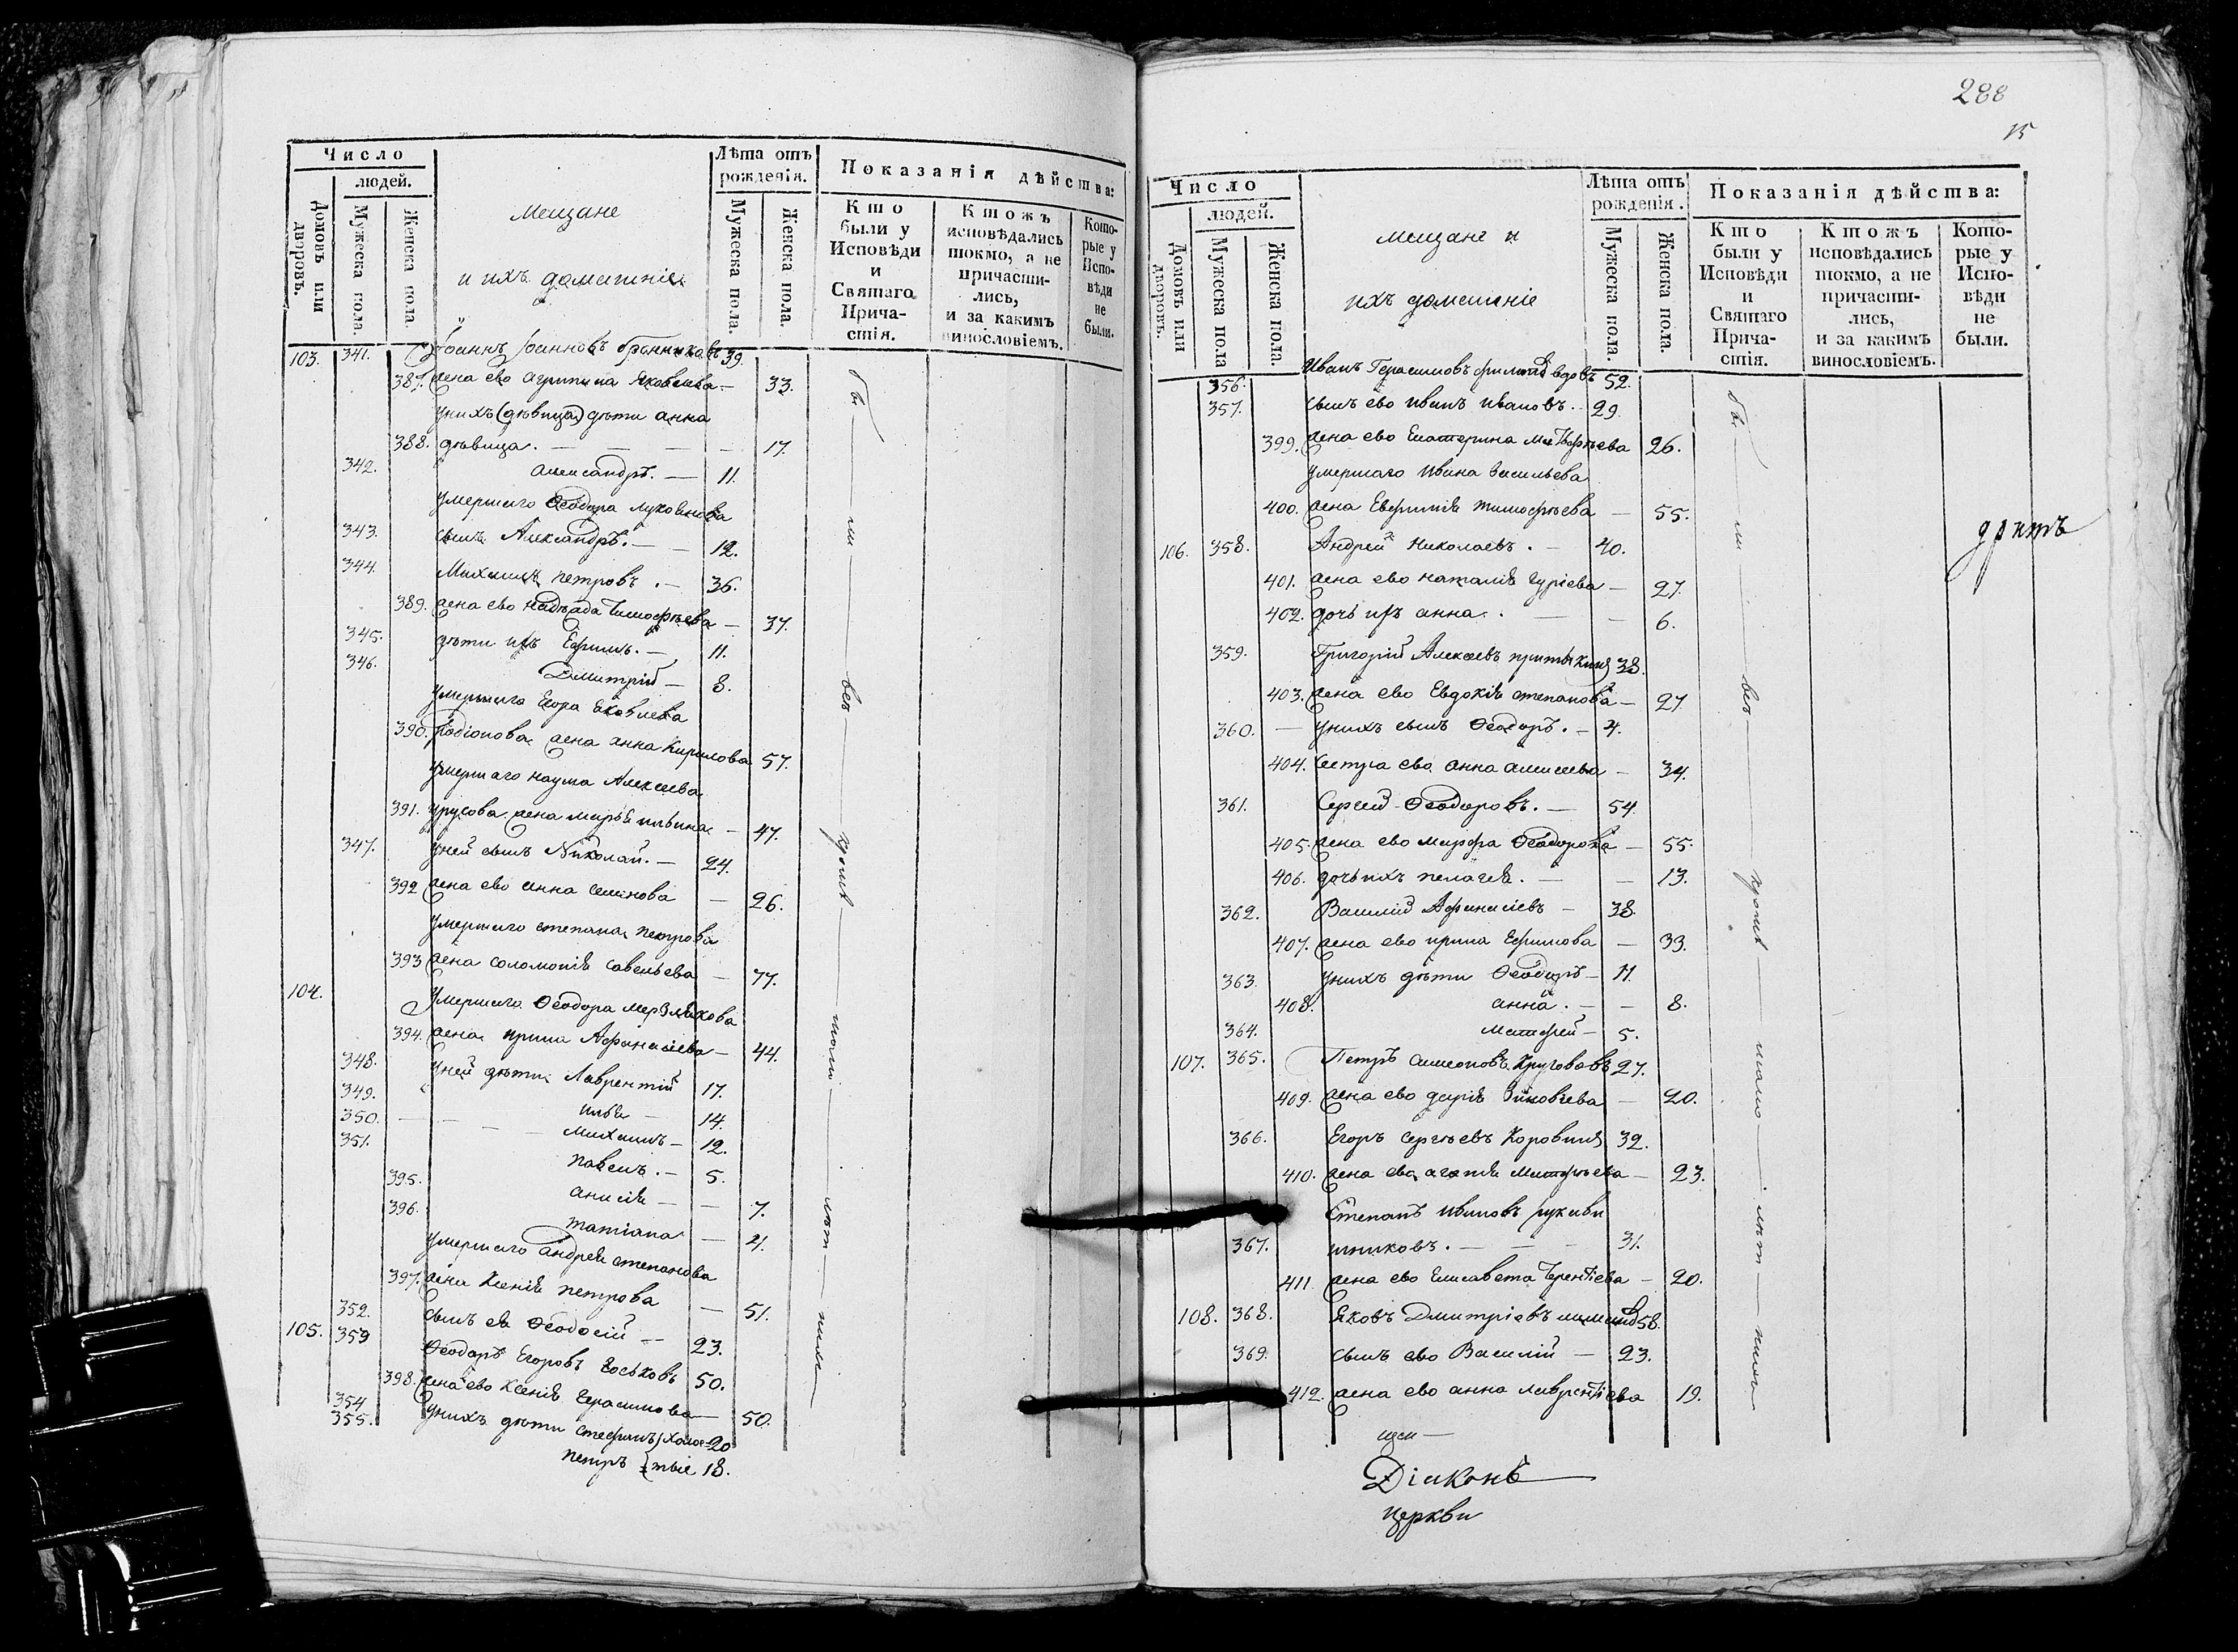 Число
людей.
Домовъ или дворовъ.
Мужеска пола.
Женска пола.
Мещане
и ихъ домашніе
Лѣта отъ рожденія.
Мужеска пола.
Женска пола.
Показанія дѣйства:
Кто были у Исповѣди и Святаго Прича-стія.
Ктожъ исповѣдались токмо, а не причасти-лись, и за какимъ винословіемъ.
Кото-рые у Испо-вѣди не были.
103. 341. Іоаннъ Іоанновъ 39.
387. жена ево Агрипина Яковлева — 33.
унихъ (дѣвица) дѣти анна
388. дѣвица. — 17.
342. Александръ. — 11.
умершаго Ѳеодора Лукоянова
343. сынъ Александръ. — 12.
344. Михаилъ петровъ. — 36.
389. жена ево надежда Тимофѣева — 37.
345. дѣти ихъ Ефимъ. — 11.
346. Димитрій — 8.
умершаго Егора Яковлева
390. Родіонова жена анна Кирилова 57.
умершаго наума Алексеева
391. урусова жена марья ильина — 47.
347. уней сынъ Николай. — 24.
392 жена ево анна семенова — 26.
умершаго степана петрова
393 жена соломонія савельева — 77.
104. умершаго Ѳеодора мерзлякова
394. жена ирина Афанасіева — 44.
348. уней дѣти Лаврентій 17.
349. илья — 14.
350. — — — — Михаилъ — 12.
351. павелъ. — 5.
395. анисія — — 7.
396. татіана — 4.
умершаго андрея степанова
397. жена Ксенія петрова — 51.
352. сынъ ея Ѳеодосій — 23.
105. 353 Ѳеодоръ Егоровъ 50.
398. жена ево Ксенія Герасимова — 50.
354 унихъ дѣти стефанъ } холос- 20
355. петръ } тые 18.
бы — ли — въ — прошл — шомъ — лѣт — нихъ —
288
15
Число
людей.
Домовъ или дворовъ.
Мужеска пола
Женска пола.
мещане и
ихъ домашніе
Лѣта отъ рожденія.
Мужеска пола.
Женска пола.
Показанія дѣйства:
Кто были у Исповѣди и Святаго Прича-стія.
Ктожъ исповѣдались токмо, а не причасти-лись, и за какимъ винословіемъ.
Кото-рые у Испо-вѣди не были.
356. Иванъ Герасимовъ вдовъ 52.
357. сынъ ево иванъ ивановъ. 29.
399. жена ево Екатерина матфѣева 26.
умершаго ивана васильева
400. жена Евфимія тимофѣева — 55.
106. 358. Андрей Николаевъ. — 40.
401. жена ево наталія гуріева — 27.
402. дочь ихъ анна. — — 6.
359. Григорій Алексеевъ 38.
403. жена ево Евдокія степанова — 27.
360. — унихъ сынъ Ѳеодоръ. — 4.
404. сестра ево анна алексеева — 34.
361. Сергей Ѳеодоровъ. — 54.
405. жена ево марфа Ѳеодорова — 55.
406. дочь ихъ пелагея. — — 13.
362. Василій Афанасіевъ — 38.
407. жена ево ирина Ефимова — 33.
363. унихъ дѣти Ѳеодоръ — 11.
408. анна. — — 8.
364. матфей — 5.
107. 365. Петръ симеоновъ Круговъ 27.
409. жена ево дарія Зиновіева — 20.
366. Егоръ сергѣевъ Коровинъ 32.
410. жена ево агапія матфѣева — 23.
Степанъ ивановъ рукави
367. шниковъ. — — — 31.
411 жена ево Елисавета Терентіева — 20.
108. 368. Яковъ Дмитріевъ 58.
369. сынъ ево Василій — 23.
412. жена ево анна лаврентіева 19.
Діаконъ
церкви